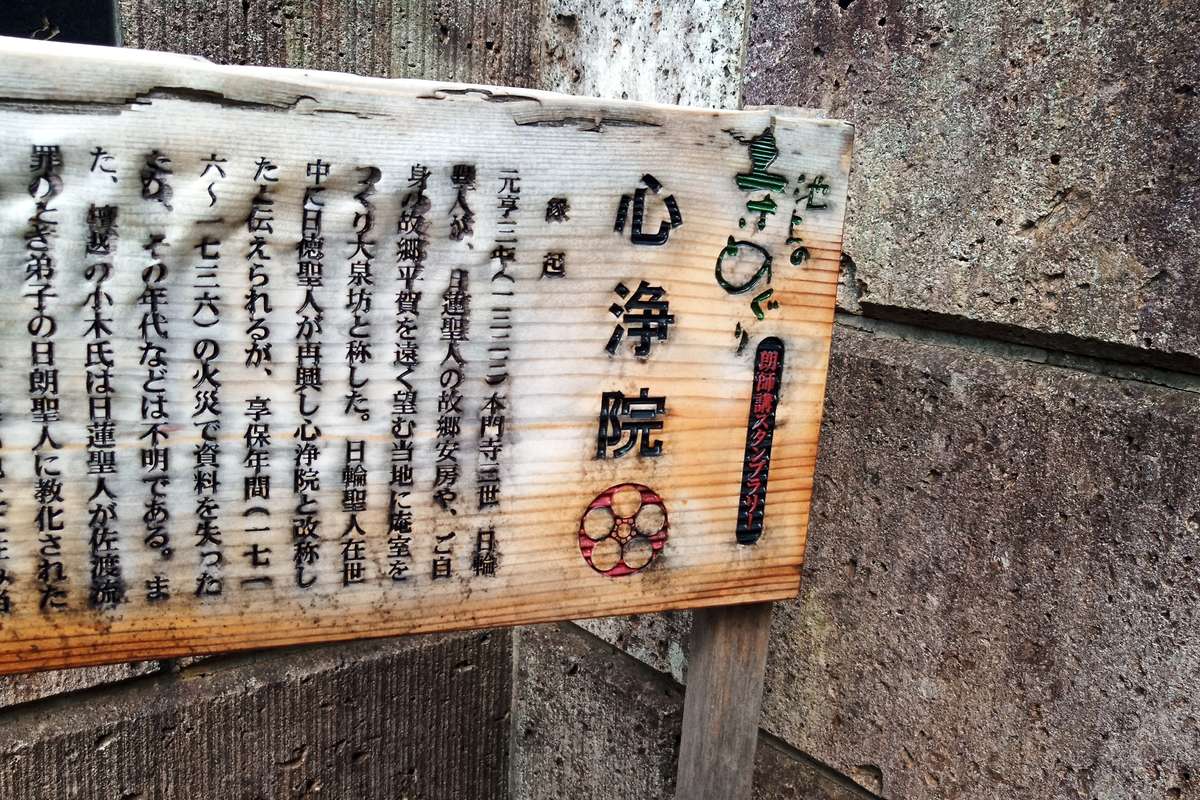 池上の
寺めぐり
朗師講スタンプラリー
心浄院
縁起
元亨三年(一三二三)本門寺三世 日輪
聖人が、日蓮聖人の故郷安房や、ご自
身の故郷平賀を遠く望む当地に庵室を
つくり大泉坊と称した。日輪聖人在世
中に日徳聖人が再興し心浄院と改称し
たと伝えられるが、享保年間(一七一
六〜一七三六)の火災で資料を失った
ため、その年代などは不明である。ま
た、檀越の小木氏は日蓮聖人が佐渡流
罪のとき弟子の日朗聖人に教化された